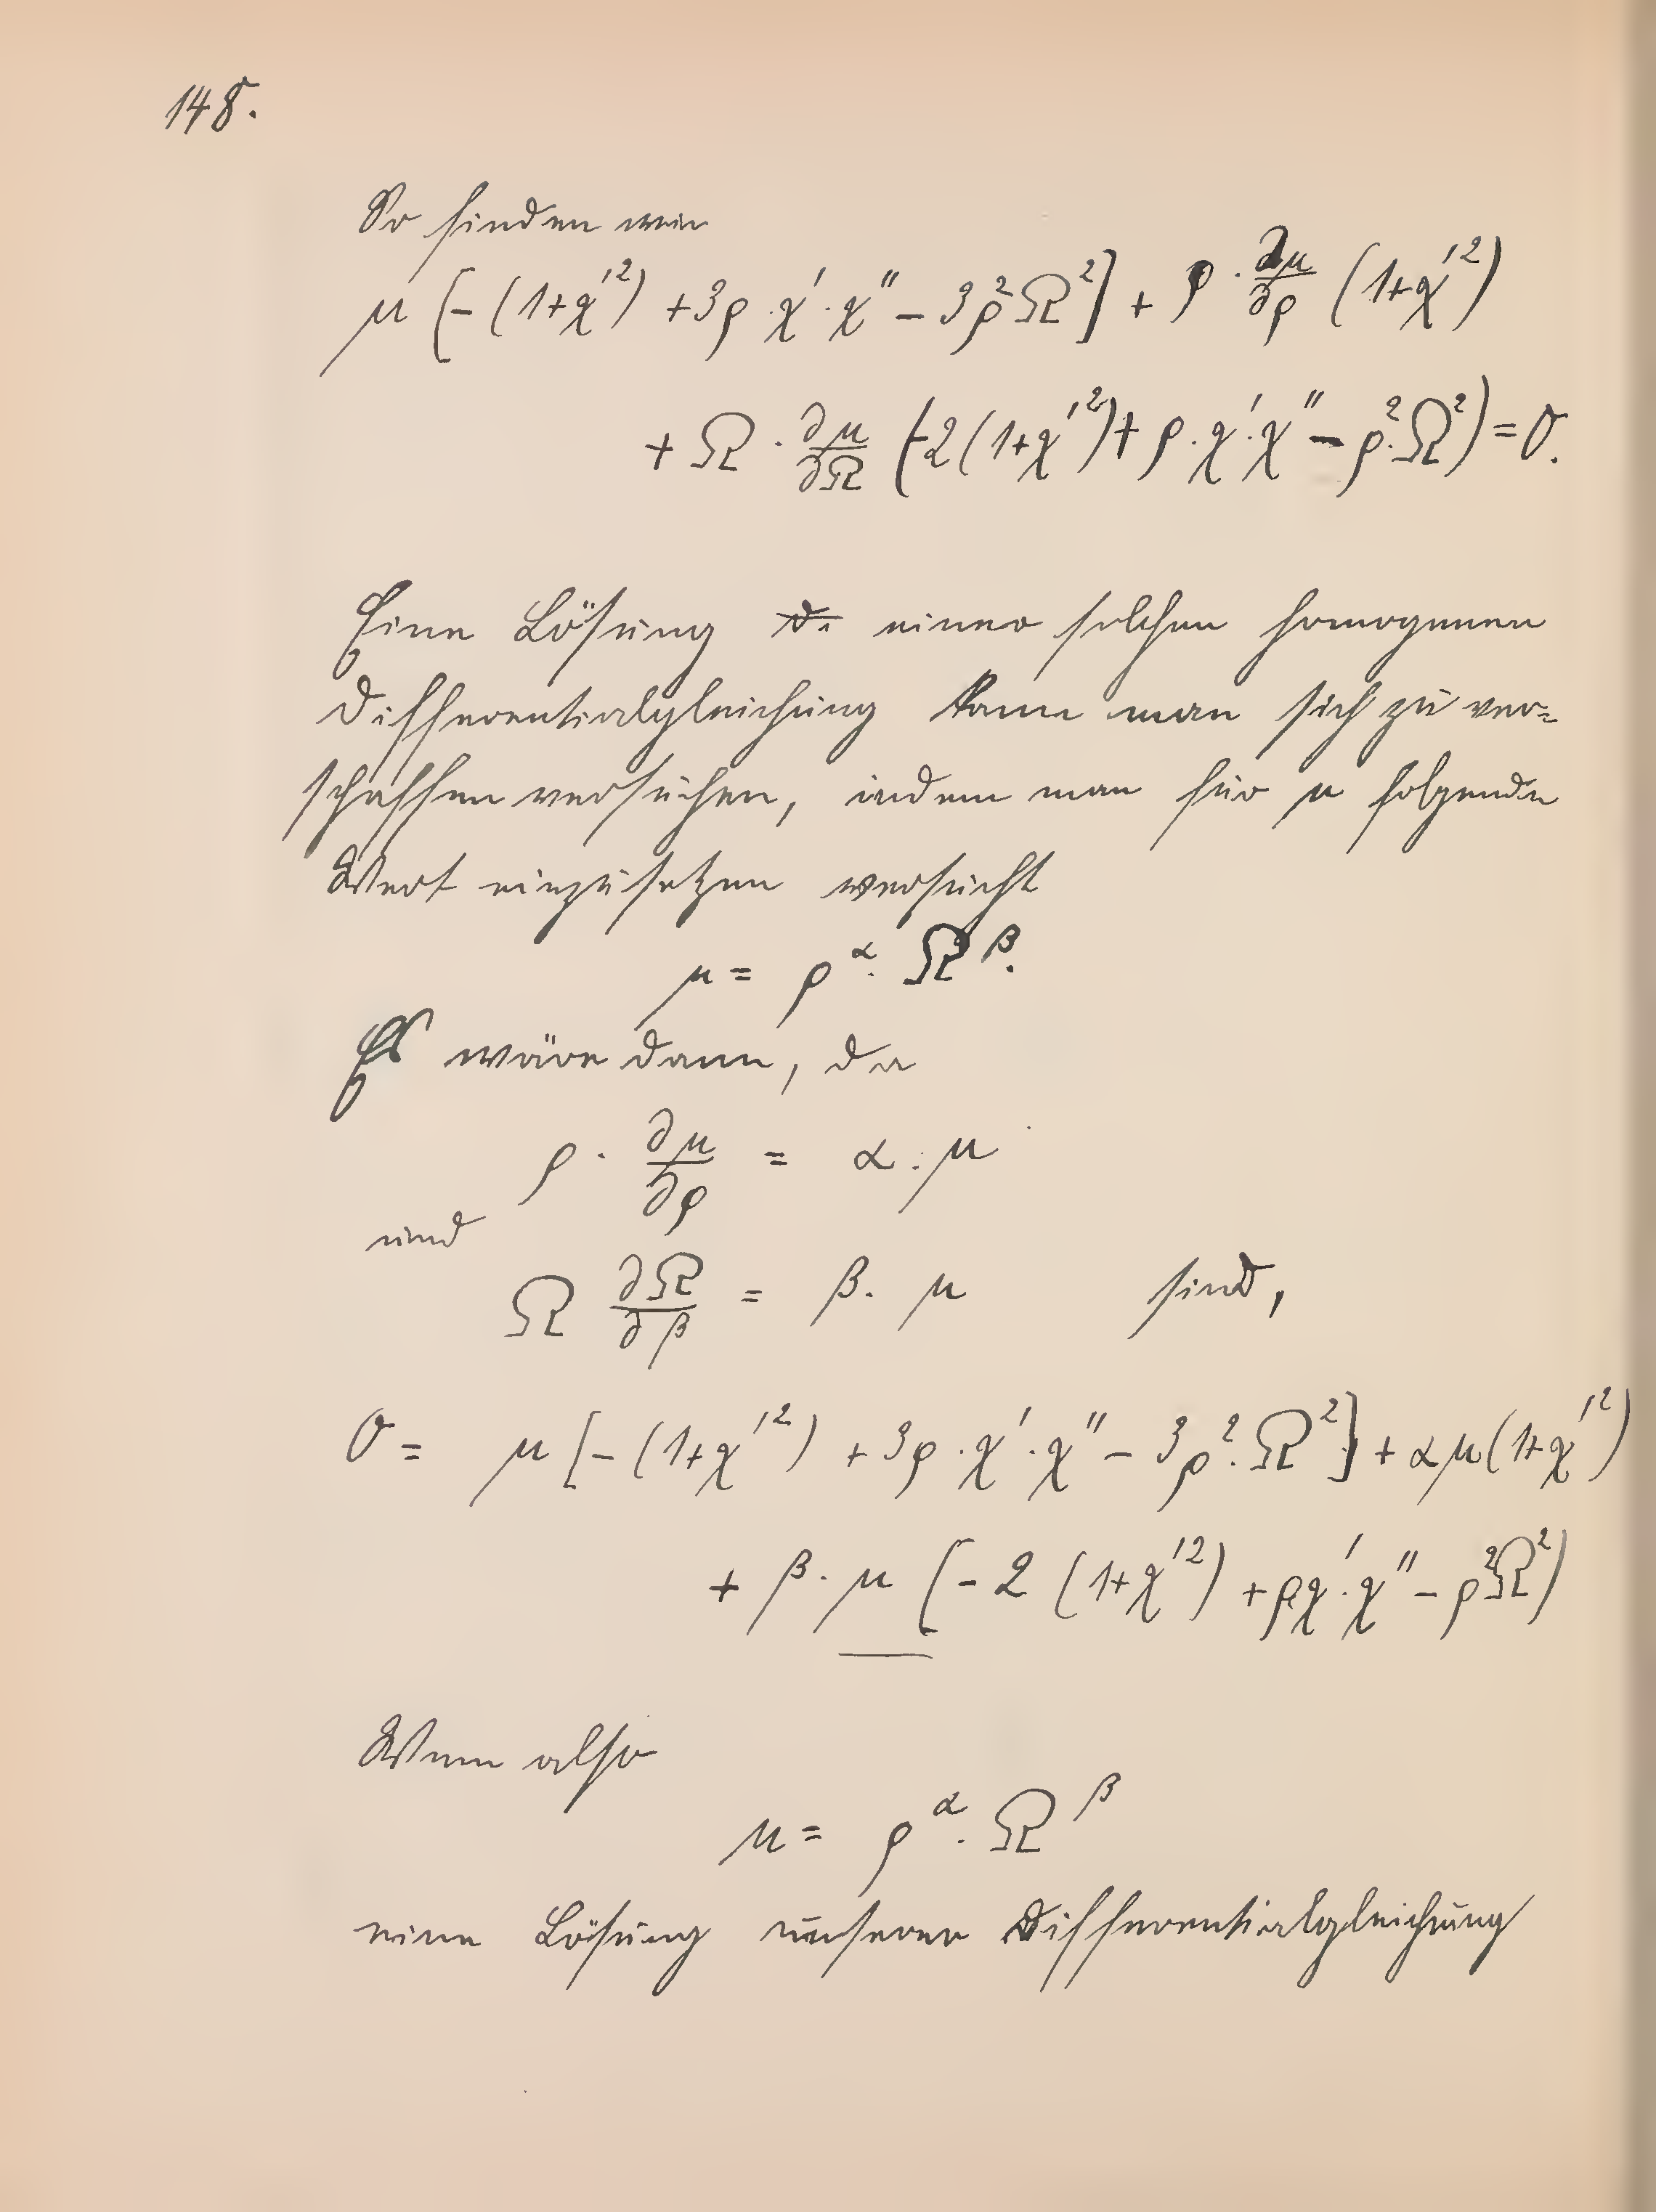 148.
So finden wir
μ [-(1+χ'²) +3ρ·χ'·χ'' - 3ρ²Ω²] + ρ·∂μ/∂ρ (1+χ'²)
+ Ω·∂μ/∂Ω (-2(1+χ'²)+ρ·χ'·χ''-ρ²·Ω²)=0.
Eine Lösung einer solchen homogenen
Differentialgleichung kann man sich zu ver=
schaffen versuchen, indem man für μ folgende
Wert einzusetzen versucht
μ = ρ^α·Ω^β.
Es wäre dann, da
ρ·∂μ/∂ρ = α·μ
und
Ω ∂Ω/∂β = β·μ sind,
0 = μ[-(1+χ'²) +3ρ·χ'·χ'' - 3ρ²·Ω²] + αμ(1+χ'²)
+ β·μ [-2(1+χ'²) +ρχ'·χ''-ρ²Ω²)
Wenn also
μ = ρ^α·Ω^β
eine Lösung unserer Differentialgleichung